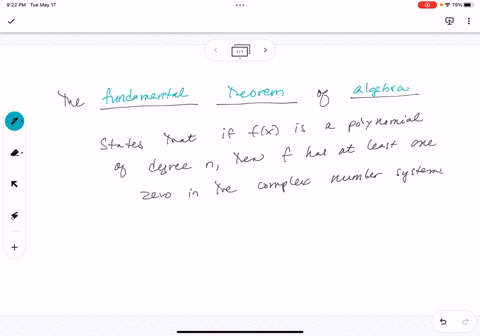 9:22 PM Tue May 17
79%
1/1
The fundamental theorem of algebra
States that if f(x) is a polynomial
of degree n, then f has at least one
zero in the complex number system.